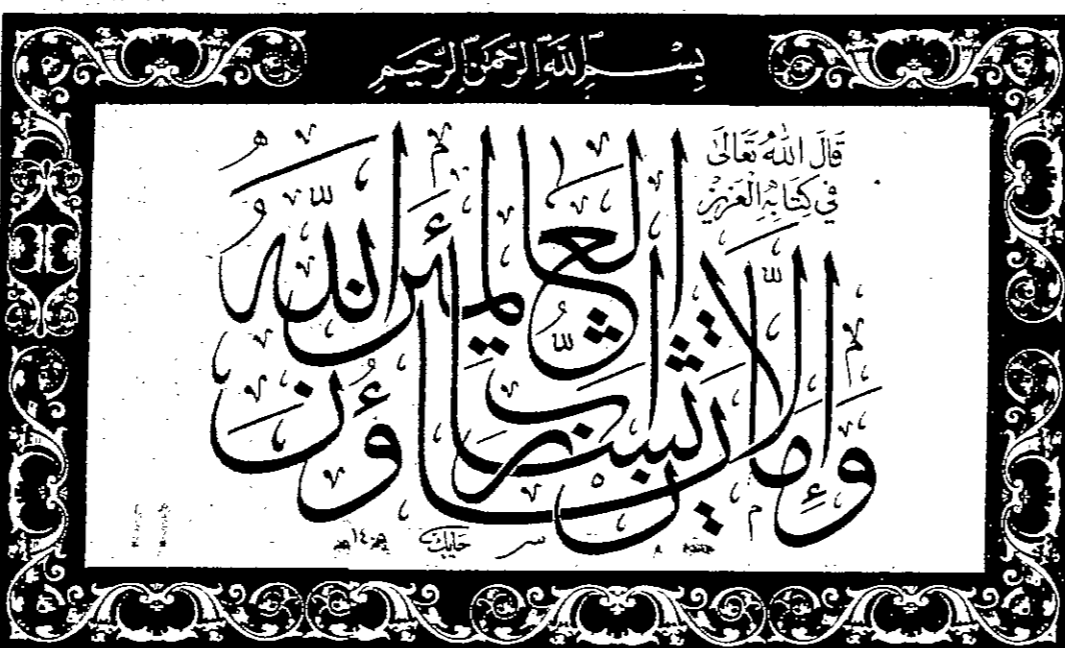 بِسْمِ اللَّهِ الرَّحْمَٰنِ الرَّحِيمِ
قَالَ اللَّهُ تَعَالَىٰ
فِي كِتَابِهِ الْعَزِيزِ
وَمَا تَشَاؤُنَ إِلَّا أَنْ يَشَاءَ اللَّهُ رَبُّ الْعَالَمِينَ